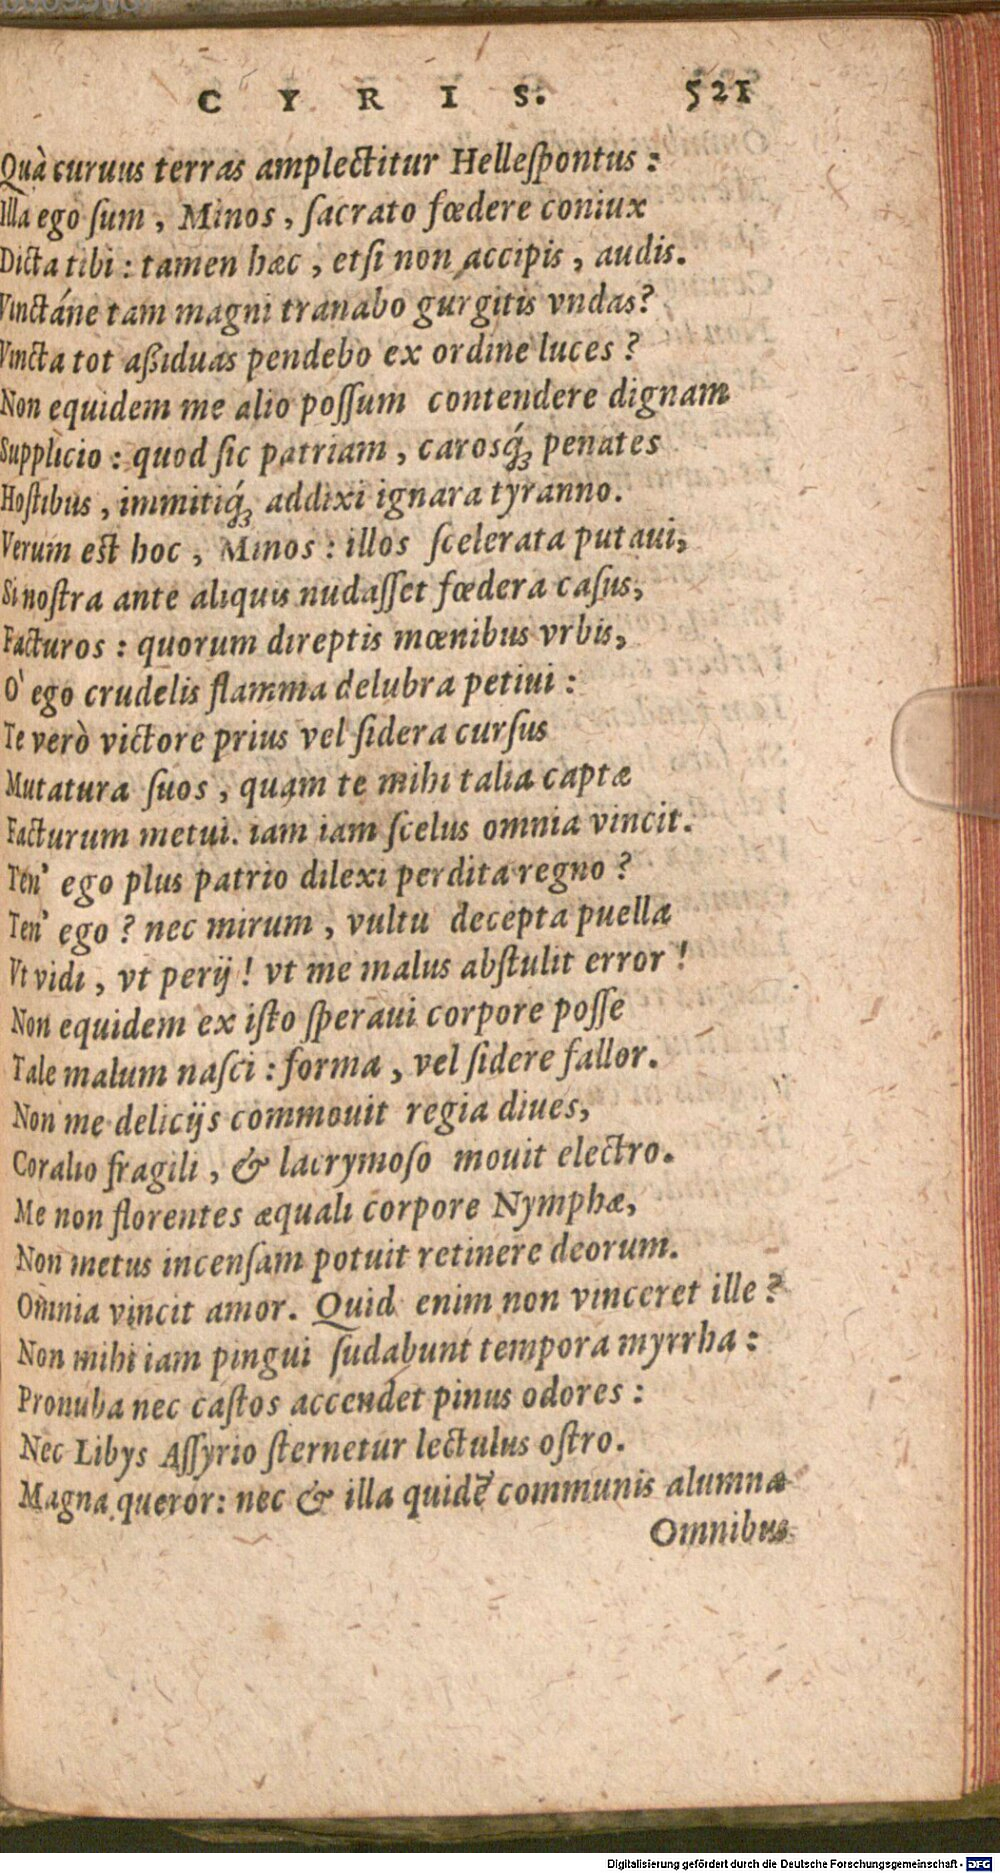 CYRIS. 521
Quà curuus terras amplectitur Hellespontus:
Illa ego sum, Minos, sacrato fœdere coniux
Dicta tibi: tamen hæc, etsi non accipis, audis.
Vinctáne tam magni tranabo gurgitis vndas?
Vincta tot aßiduas pendebo ex ordine luces?
Non equidem me alio possum contendere dignam
Supplicio: quod sic patriam, carosq́; penates
Hostibus, immitiq́; addixi ignara tyranno.
Verum est hoc, Minos: illos scelerata putaui,
Si nostra ante aliquis nudasset fœdera casus,
Facturos: quorum direptis mœnibus vrbis,
O' ego crudelis flamma delubra petiui:
Te verò victore prius vel sidera cursus
Mutatura suos, quam te mihi talia captæ
Facturum metui. iam iam scelus omnia vincit.
Ten' ego plus patrio dilexi perdita regno?
Ten' ego? nec mirum, vultu decepta puella
Vt vidi, vt perij! vt me malus abstulit error!
Non equidem ex isto speraui corpore posse
Tale malum nasci: forma, vel sidere fallor.
Non me delicijs commouit regia diues,
Coralio fragili, & lacrymoso mouit electro.
Me non florentes æquali corpore Nymphæ,
Non metus incensam potuit retinere deorum.
Omnia vincit amor. Quid enim non vinceret ille?
Non mihi iam pingui sudabunt tempora myrrha:
Pronuba nec castos accendet pinus odores:
Nec Libys Assyrio sternetur lectulus ostro.
Magna queror: nec & illa quidē communis alumna
Omnibus
Digitalisierung gefördert durch die Deutsche Forschungsgemeinschaft - DFG